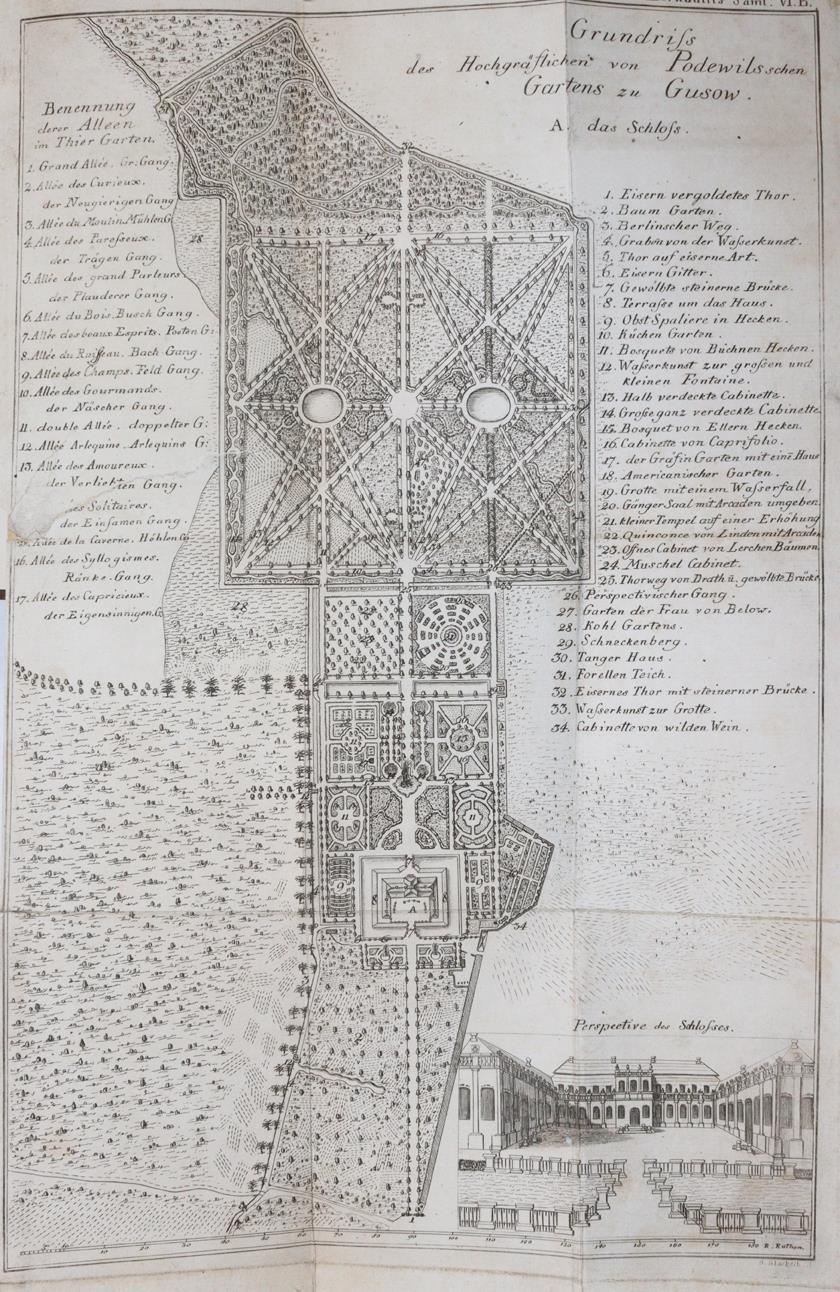 Saml. VI. B.
Grundriſs
des Hochgräflichen von Podewilsschen
Gartens zu Gusow.
A. das Schloſs.
Benennung
derer Alleen
im Thier Garten.
1. Grand Allée. Gr: Gang.
2. Allée des Curieux.
der Neugierigen Gang
3. Allée du Moulin. Mühlen G
4. Allée des Paresseux.
der Trägen Gang.
5. Allée des grand Parleurs
der Plauderer Gang.
6. Allée du Bois. Busch Gang.
7. Allée des beaux Esprits. Poeten G:
8. Allée du Ruiſseau. Bach Gang.
9. Allée des Champs. Feld Gang.
10. Allée des Gourmands.
der Näscher Gang.
11. double Allée. doppelter G:
12. Allée Arlequine. Arlequins G:
13. Allée des Amoureux.
der Verliebten Gang.
des Solitaires.
der Einsamen Gang.
15. Allée de la Caverne. Höhlen G
16. Allée des Syllogismes.
Ränke. Gang.
17. Allée des Capricieux.
der Eigensinnigen. G
1. Eisern vergoldetes Thor.
2. Baum Garten.
3. Berlinscher Weg.
4. Graben von der Waſserkunst.
5. Thor auf eiserne Art.
6. Eisern Gitter.
7. Gewölbte steinerne Brücke.
8. Terraſse um das Haus.
9. Obst Spaliere in Hecken.
10. Küchen Garten.
11. Bosquets von Büchnen Hecken.
12. Waſserkunst zur groſsen und
kleinen Fontaine.
13. Halb verdeckte Cabinette.
14. Groſse ganz verdeckte Cabinette.
15. Bosquet von Ellern Hecken.
16. Cabinette von Caprifolio.
17. der Gräfin Garten mit einē Haus
18. Americanischer Garten.
19. Grotte mit einem Waſserfall.
20. Gänger Saal mit Arcaden umgeben.
21. kleiner Tempel auf einer Erhöhung
22. Quinconce von Linden mit Arcaden
23. Offnes Cabinet von Lerchen Bäumen.
24. Muschel Cabinet.
25. Thorweg von Drath ū. gewölbte Brücke
26. Perspectivischer Gang.
27. Garten der Frau von Below.
28. Kohl Gartens.
29. Schneckenberg.
30. Tanger Haus.
31. Forellen Teich.
32. Eisernes Thor mit steinerner Brücke.
33. Waſserkunst zur Grotte.
34. Cabinette von wilden Wein.
32
17
16
28
10
25
33
28
29
11
13
11
11
9
9
A
8
8
34
2
12
1
Perspective des Schloſses.
10 20 30 40 50 60 70 80 90 100 110 120 130 140 150 160 170 180 R. Ruthen.